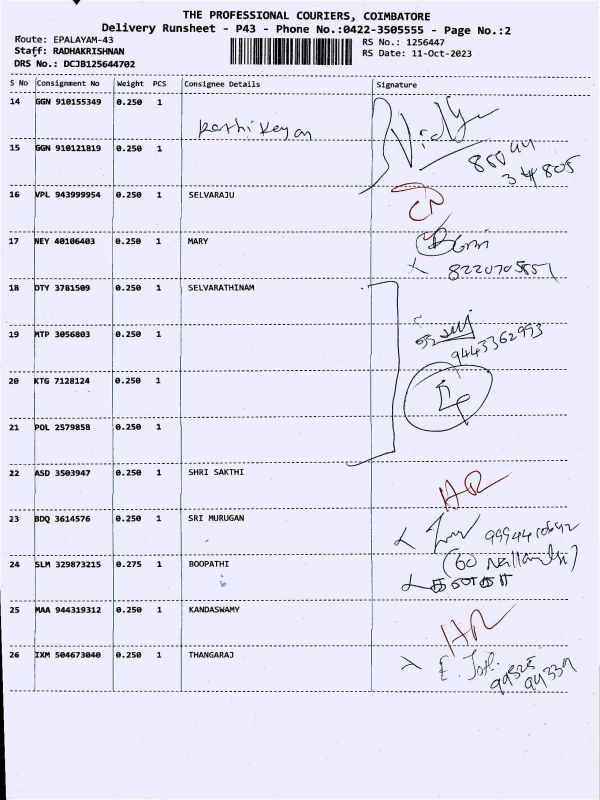 THE PROFESSIONAL COURIERS, COIMBATORE
Delivery Runsheet - P43 - Phone No.:0422-3505555 - Page No.:2
Route: EPALAYAM-43
RS No.: 1256447
Staff: RADHAKRISHNAN
RS Date: 11-Oct-2023
DRS No.: DCJB125644702
S No Consignment No Weight PCS Consignee Details Signature
14 GGN 910155349 0.250 1
15 GGN 910121819 0.250 1
16 VPL 943999954 0.250 1 SELVARAJU
17 NEY 40106403 0.250 1 MARY
18 DTY 3781509 0.250 1 SELVARATHINAM
19 MTP 3056803 0.250 1
9443362993
20 KTG 7128124 0.250 1
21 POL 2579858 0.250 1
22 ASD 3503947 0.250 1 SHRI SAKTHI
23 BDQ 3614576 0.250 1 SRI MURUGAN
24 SLM 329873215 0.275 1 BOOPATHI
25 MAA 944319312 0.250 1 KANDASWAMY
26 IXM 504673040 0.250 1 THANGARAJ